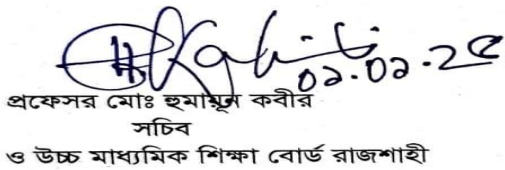 ০১.০১.২৫
প্রফেসর মোঃ হুমায়ূন কবীর
সচিব
ও উচ্চ মাধ্যমিক শিক্ষা বোর্ড রাজশাহী